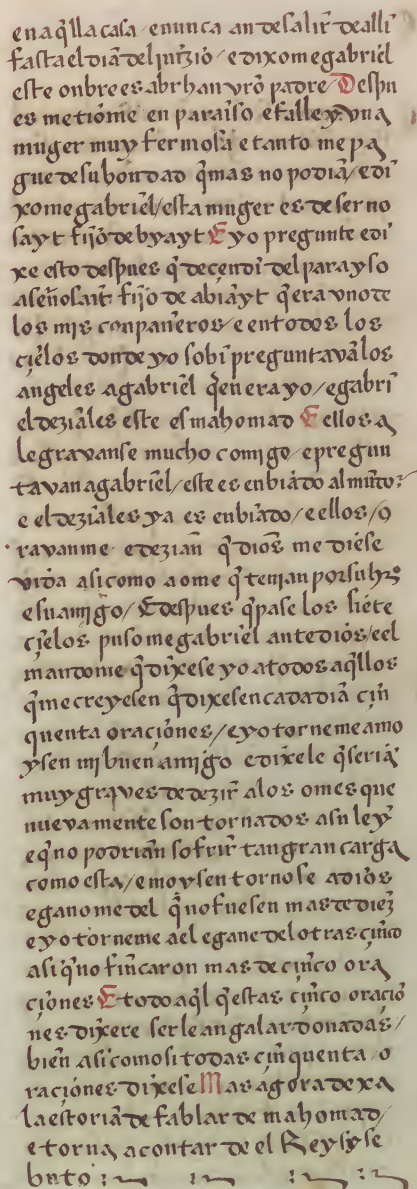 en aq̃lla casa / e nunca an de salir̃ de alli
fasta el dia del juyzio / e dixome gabriel
este onbre es abrhan vr̃o padre / Despu
es metiome en paraiso e falle y vna
muger muy fermosa e tanto me pa
gue de su bondad q̃ mas no podia / e di
xome gabriel / esta muger es de ser no
sayt fijo de byayt E yo pregunte e di
xe esto despues q̃ decendi del parayso
a señosait fijo de abiayt q̃ era vno de
los mis conpañeros / e en todos los
çielos donde yo sobi preguntavã los
angeles a gabriel q̃en era yo / e gabri
el deziales este es mahomad E ellos a
legravanse mucho comigo / e pregun
tavan a gabriel / este es enbiado al mũdo
e el deziales ya es enbiado / e ellos / o
ravanme e dezian q̃ dios me diese
vida asi como a ome q̃ tenian por su hr̃o
e su amigo / E despues q̃ pase los siete
çielos pusome gabriel ante dios / e el
mandome q̃ dixese yo a todos aq̃llos
q̃ me creyesen q̃ dixesen cada dia çin
quenta oraçiones / e yo torneme a mo
ysen mi buen amigo e dixele q̃ seria
muy graves de dezir̃ a los omes que
nueva mente son tornados a su ley
e q̃ no podrian sofrir̃ tan gran carga
como esta / e moysen tornose a dios
e ganome del q̃ no fuesen mas de diez
e yo torneme a el e gane del otras çinco
asi q̃ no fincaron mas de çinco ora
çiones E todo aq̃l q̃ estas çinco oraçio
nes dixere serle an galardonadas /
bien asi como si todas çinquenta / o
raçiones dixese Mas agora dexa
la estoria de fablar de mahomad /
e torna a contar de el Rey syse
buto